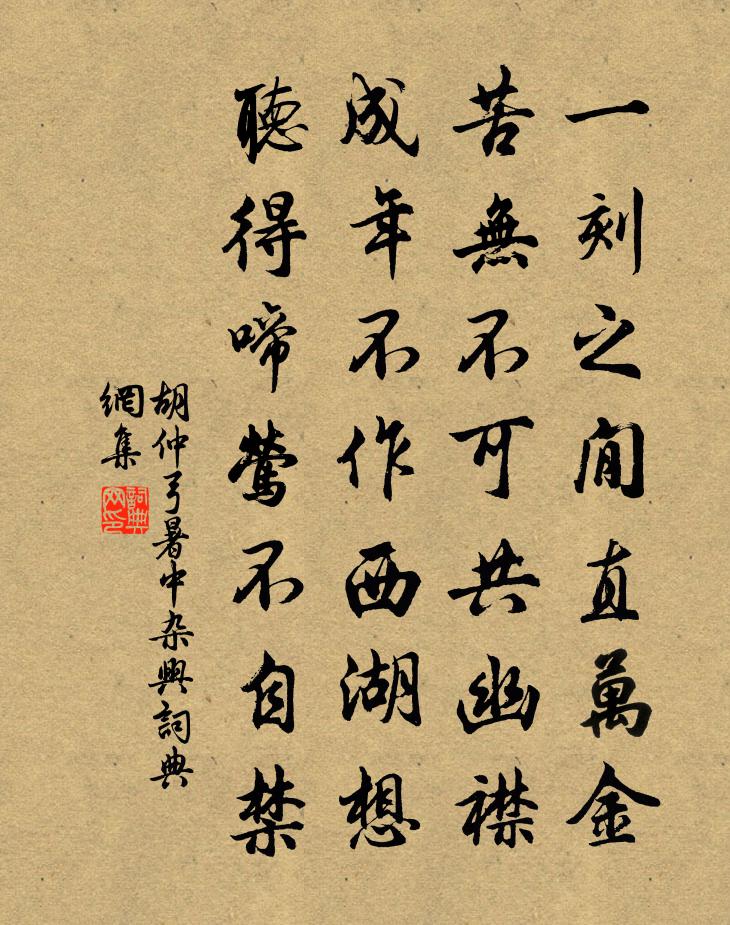 一刻之間直萬金
苦無不可共幽襟
成年不作西湖想
聽得啼鶯不自禁
胡仲弓暑中杂興詞典
網集
詞典網印